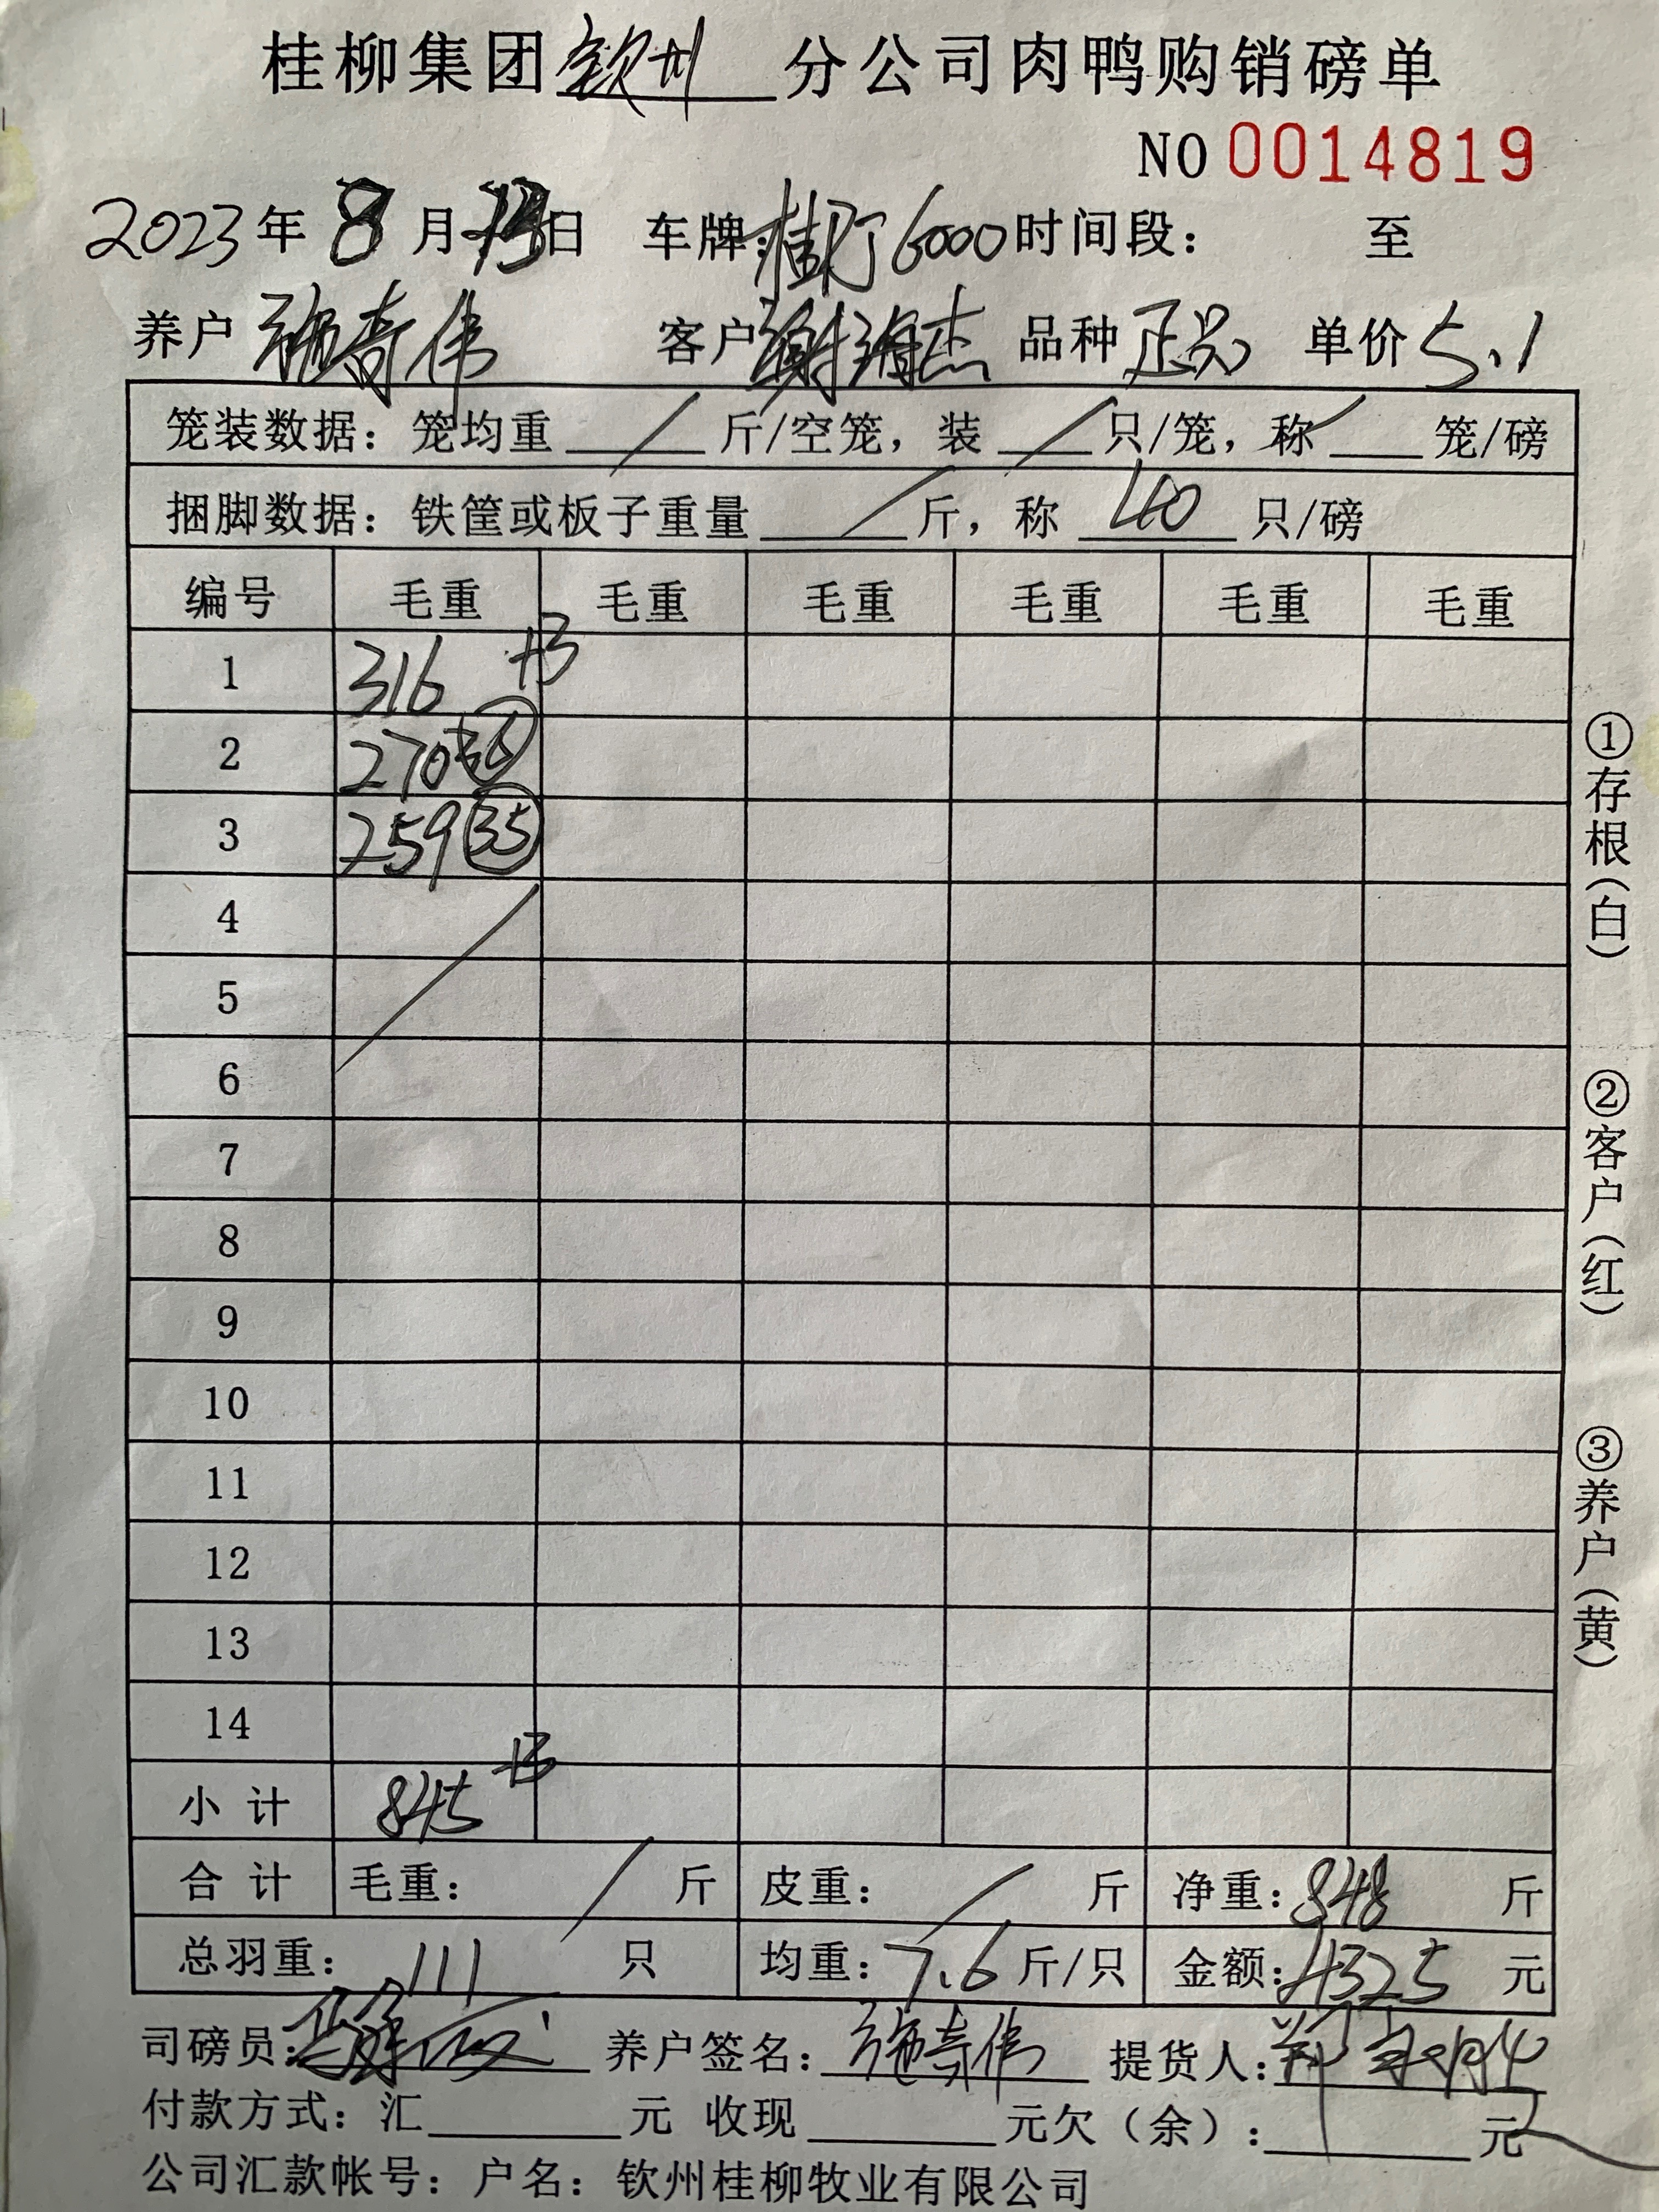 桂柳集团钦州分公司肉鸭购销磅单
NO 0014819
2023年8月13日 车牌:桂 6000 时间段: 至
养户 施奇伟 客户 谢 杰 品种 正只 单价 5.1
笼装数据: 笼均重 / 斤/空笼, 装 / 只/笼, 称 / 笼/磅
捆脚数据: 铁筐或板子重量 / 斤, 称 40 只/磅
编号 毛重 毛重 毛重 毛重 毛重 毛重
1 316 +3
2 270
3 259 35
4
5
6
7
8
9
10
11
12
13
14
小计 845 +3
合计 毛重: / 斤 皮重: / 斤 净重: 848 斤
总羽重: 111 只 均重: 7.6 斤/只 金额: 4325 元
司磅员: 养户签名: 施奇伟 提货人:
付款方式: 汇 元 收现 元欠(余): 元
公司汇款帐号: 户名: 钦州桂柳牧业有限公司
①存根(白)
②客户(红)
③养户(黄)